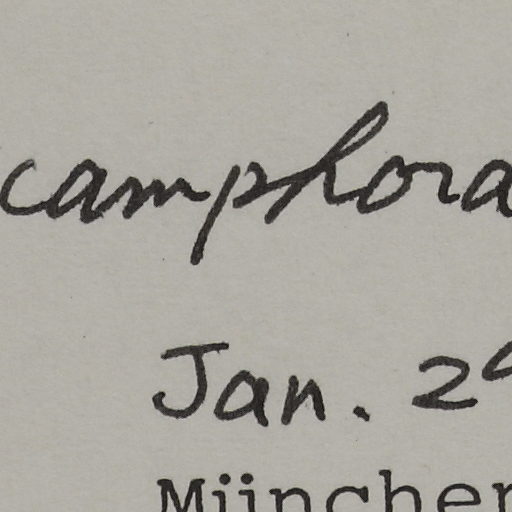 camphora
Jan. 2
München